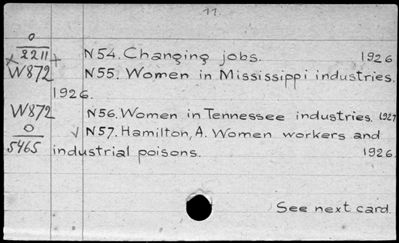 11.
0
2211 N54. Changing jobs. 1926
x x
W872 N55. Women in Mississippi industries.
1926.
W872 N56. Women in Tennessee industries. 1927
0 √ N57. Hamilton, A. Women workers and
5465 industrial poisons. 1926.
See next card.